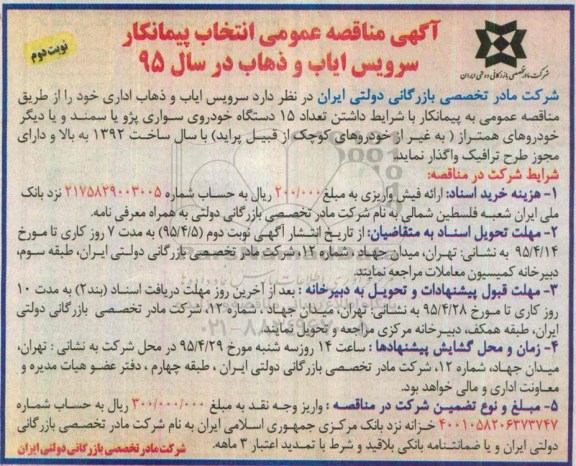 آگهی مناقصه عمومی انتخاب پیمانکار
سرویس ایاب و ذهاب در سال ۹۵
نوبت دوم
شرکت مادر تخصصی بازرگانی دولتی ایران
شرکت مادر تخصصی بازرگانی دولتی ایران در نظر دارد سرویس ایاب و ذهاب اداری خود را از طریق
مناقصه عمومی به پیمانکار با شرایط داشتن تعداد ۱۵ دستگاه خودروی سواری پژو یا سمند و یا دیگر
خودروهای همتراز ( به غیر از خودروهای کوچک از قبیل پراید) با سال ساخت ۱۳۹۲ به بالا و دارای
مجوز طرح ترافیک واگذار نماید.
شرایط شرکت در مناقصه:
۱- هزینه خرید اسناد: ارائه فیش واریزی به مبلغ ۲۰۰/۰۰۰ ریال به حساب شماره ۲۱۷۵۸۲۹۰۰۳۰۰۵ نزد بانک
ملی ایران شعبه فلسطین شمالی به نام شرکت مادر تخصصی بازرگانی دولتی به همراه معرفی نامه.
۲- مهلت تحویل اسناد به متقاضیان: از تاریخ انتشار آگهی نوبت دوم (۹۵/۴/۵) به مدت ۷ روز کاری تا مورخ
۹۵/۴/۱۴ به نشانی: تهران، میدان جهاد، شماره ۱۲، شرکت مادر تخصصی بازرگانی دولتی ایران، طبقه سوم،
دبیرخانه کمیسیون معاملات مراجعه نمایند.
۳- مهلت قبول پیشنهادات و تحویل به دبیرخانه : بعد از آخرین روز مهلت دریافت اسناد (بند۲) به مدت ۱۰
روز کاری تا مورخ ۹۵/۴/۲۸ به نشانی تهران، میدان جهاد ، شماره ۱۲، شرکت مادر تخصصی بازرگانی دولتی
ایران، طبقه همکف، دبیرخانه مرکزی مراجعه و تحویل نمایند.
۴- زمان و محل گشایش پیشنهادها : ساعت ۱۴ روزسه شنبه مورخ ۹۵/۴/۲۹ در محل شرکت به نشانی : تهران،
میدان جهاد، شماره ۱۲، شرکت مادر تخصصی بازرگانی دولتی ایران ، طبقه چهارم ، دفتر عضو هیات مدیره و
معاونت اداری و مالی خواهد بود.
۵- مبلغ و نوع تضمین شرکت در مناقصه : واریز وجه نقد به مبلغ ۳۰۰/۰۰۰/۰۰۰ ریال به حساب شماره
۴۰۰۱۰۵۸۲۰۶۳۷۳۷۴۷ خزانه نزد بانک مرکزی جمهوری اسلامی ایران به نام شرکت مادر تخصصی بازرگانی
دولتی ایران و یا ضمانتنامه بانکی بلاقید و شرط با تمدید اعتبار ۳ ماهه.
شرکت مادر تخصصی بازرگانی دولتی ایران